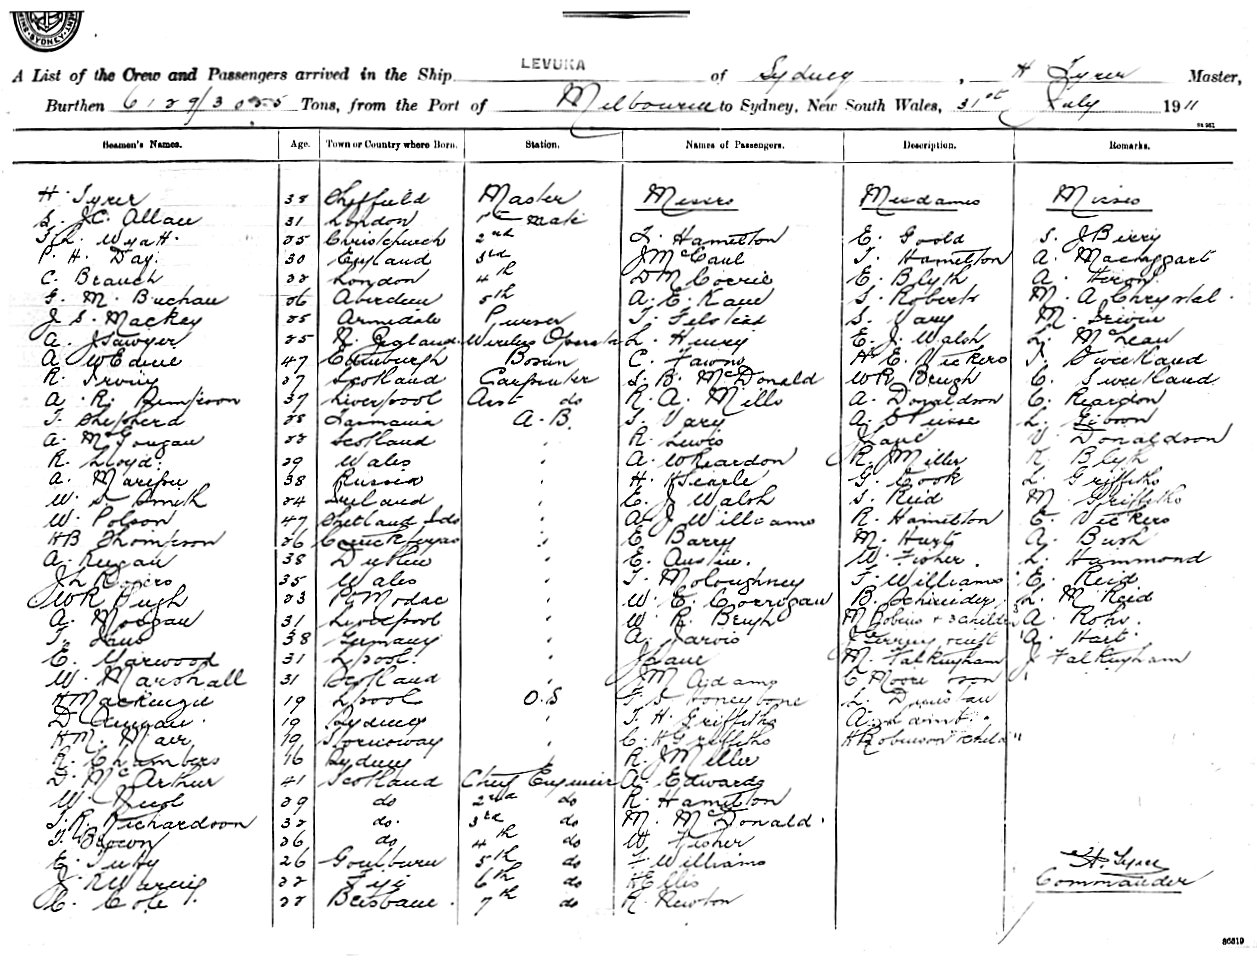 SYDNEY
LEVUKA
A List of the Crew and Passengers arrived in the Ship of Sydney, H Tyrer Master,
Burthen 6129/3055 Tons, from the Port of Melbourne to Sydney, New South Wales, 31st July 1911
Seamen's Names. Age. Town or Country where Born. Station. Names of Passengers. Description. Remarks.
H. Tyrer 38 Sheffield Master Messrs Mesdames Misses
S. J.C. Allan 31 London 1st Mate
T. L. Wyatt 25 Christchurch 2nd T. Hamilton E. Goold S. J Birry
P. H. Day. 30 England 3rd J McCaul T. Hamilton A. Mactaggart
C. Branch 22 London 4th D M Corrie E. Blyth A. Heron
G. M. Buchan 26 Aberdeen 5th A. E. Kane S. Roberts M. A Chrystal
J. S. Mackey 25 Armidale Purser T. Felstead S. Vary M. Irwin
A. J Sawyer 25 N. England Wireless Operator L. Huey E. J. Walsh L. McLean
A. W Edine 47 Edinburgh Bosun C. Fawns H. E. Vickers J. Sweetland
R. Irving 27 Scotland Carpenter S. B. McDonald W R Beugh C. Sweetland
A. R. Simpson 37 Liverpool Asst do R. A. Mills A. Donaldson C. Reardon
T. Shepherd 28 Tasmania A.B. T. Vary A. L. Gibson
A. McDougau 22 Scotland R. Lewis J Lane V. Donaldson
R. Lloyd. 29 Wales A. W Reardon R. J Miller R. Blyth
A. 38 Russia H. H Searle G. Cook L. Griffiths
W. S Smith 24 Ireland E. J Walsh S. Reid M. Griffiths
W. Polson 47 Shetland Isds A. J Williams R. Hamilton E. Vickers
H B Thompson 26 Carrickfergus E. Barry M. Hurt A. Bush
A. Keegan 38 Dublin E. Austin. W. Fisher. L. Hammond
J L Rogers 35 Wales T. Moloughney F. Williams E. Reid
W R Pugh 23 Pt Madoc W. E. Corrigan B. Schneider L. M Reid
A. Morgan 31 Liverpool W. R. Beugh M Robins + 3 children A. Rohu.
T. 38 Germany A. Jarvis J & inft A. Hart
E. Marwood 31 Lpool. J Lane M. Falkingham J Falkingham
W. Marshall 31 Scotland J M Adams C Moore son
H Mackenzie 19 Lpool O.S F. S Honeybone L. Dunstan
D 19 Sydney T. H. Griffiths A. Lamb.
H M. Mair 19 Stornoway C. H Griffiths H Robinson & child
R. Chambers 16 Sydney R. J Miller
D. McArthur 41 Scotland Chief Engineer A. Edwards
W. Nicol 29 do 2nd do R. Hamilton
T. R. Richardson 32 do. 3rd do M. McDonald.
T. Brown 26 do 4th do W. Fisher
E. Tuby 26 Goulburn 5th do F Williams
J. R Waring 22 Fiji 6th do H Ellis
C. Cole. 22 Brisbane. 7th do R. Newton
H. Tyrer
Commander
86819